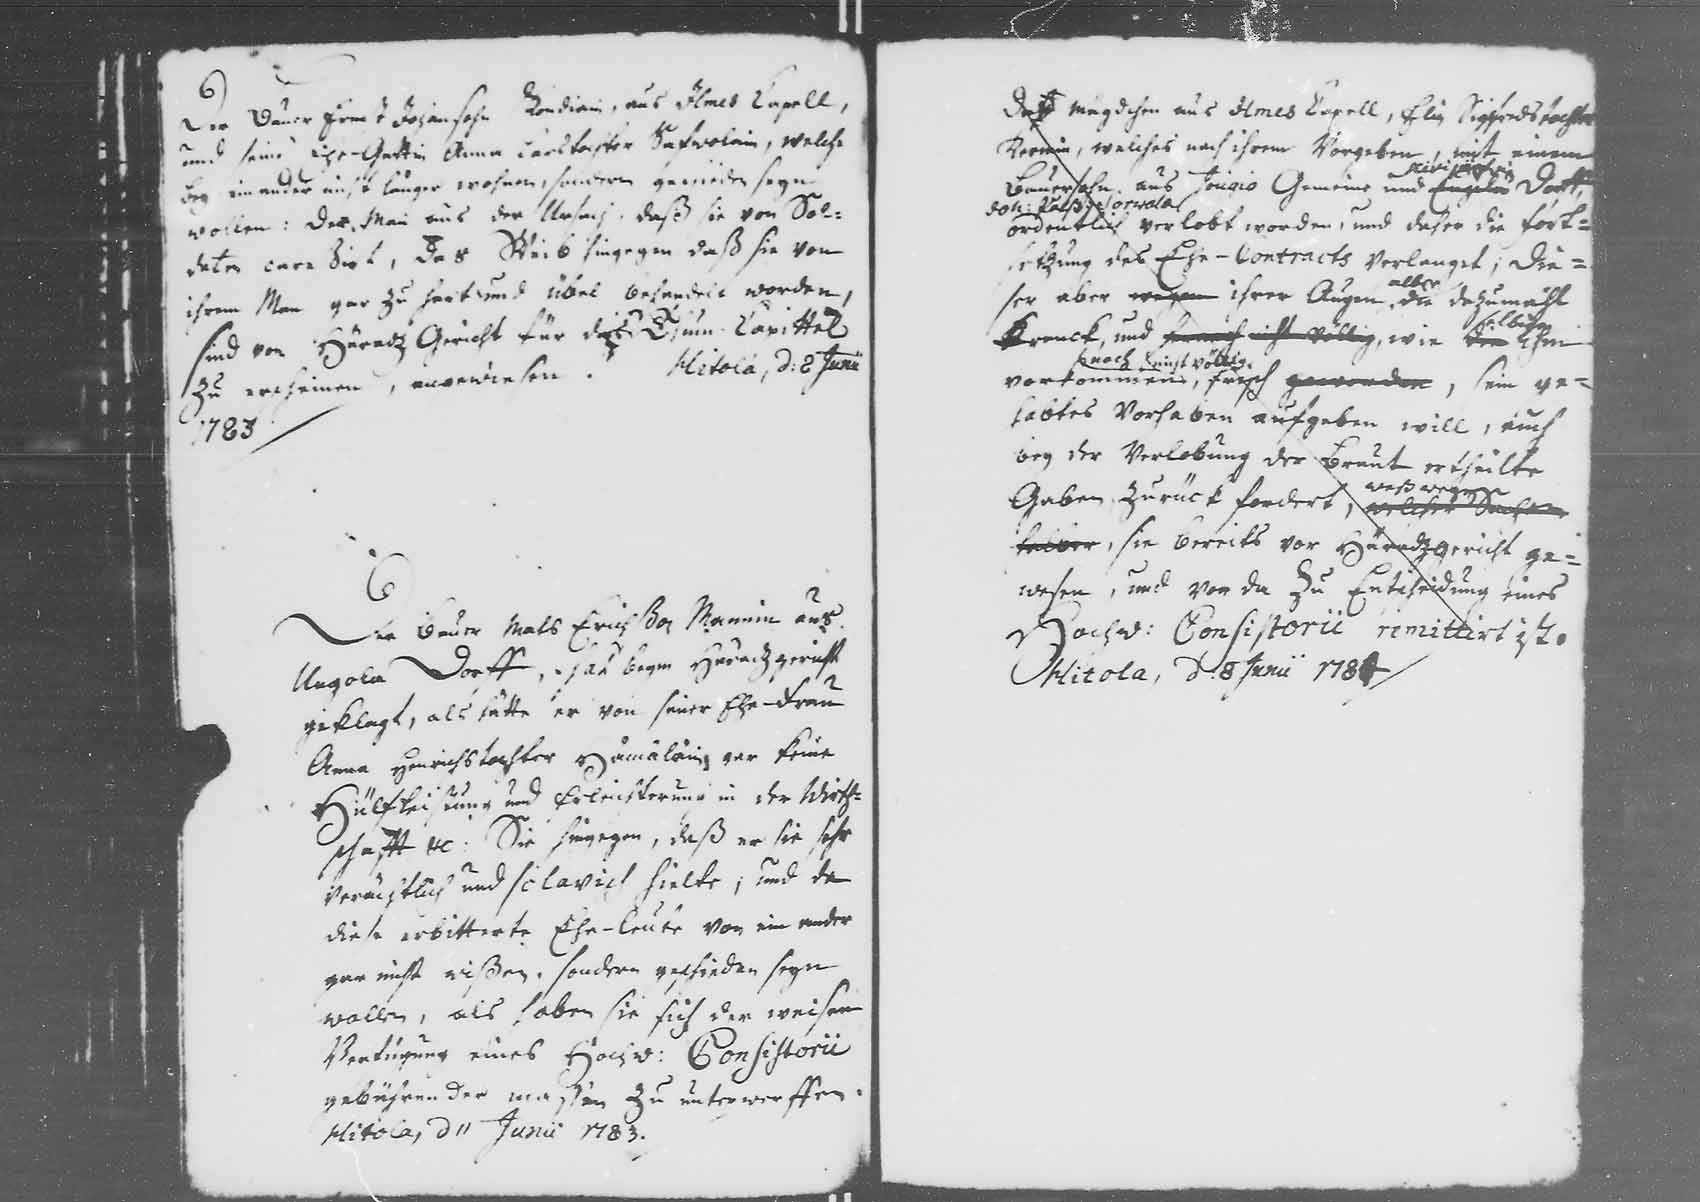 Der Bauer Erich Johansohn Kondiain, aus Ilmes Capell,
und seine Ehe-Gattin Anna Larstochter Safwolain, welche
bey einander nicht länger wohnen, sondern geschieden seyn
wollen: Der Man aus der Ursach, daß sie von Sol=
daten caressirt, Das Weib hingegen daß sie von
ihrem Man gar zu hart und übel behandelt worden,
sind von Häradz Gericht für das Dhum-Capittel
zu erscheinen, angewiesen. Hitola, d: 8 Junii
1783
Der Bauer Mats Erichßon Mannin aus
Ungola Dorff, hat beym Häradzgericht
geklagt, als hätte er von seiner Ehe-Frau
Anna Henrichstochter Hämäläin gar keine
Hülfleistung und Erleichterung in der Wirth=
schafft &c: Sie hingegen, daß er sie sehr
verächtlich und sclavisch hielte; und da
diese erbitterte Ehe-Leute von einander
gar nicht wißen, sondern geschieden seyn
wollen, als haben sie sich der weisen
Verfügung eines Hochw: Consistorii
gebührender massen zu unterwerffen.
Hitola, d 11 Junii 1783.
Das Mägdchen aus Ilmes Capell, Elin Sigfredstochter
, welches nach ihrem Vorgeben, mit einem
Bauersohn aus Jougio Gemeine und Dorff,
Joh:
ordentlich verlobt worden, und daher die Fort=
setzung des Ehe-Contracts verlanget; Die=
ser aber wegen ihrer Augen, die dazumahl
alber
Kranck, und nicht völlig, wie ihm
selbige
noch nicht völlig
vorkommen, frisch geworden, sein ge=
habtes Vorhaben aufgeben will, auch
bey der Verlobung der Braut ertheilte
Gaben zurück fordert, welcher Sachen
weswegen
halber, sie bereits vor Häradzgericht ge=
wesen, und von da zu Entscheidung eines
Hochw: Consistorii remittirt ist.
Hitola, d: 8 Junii 178